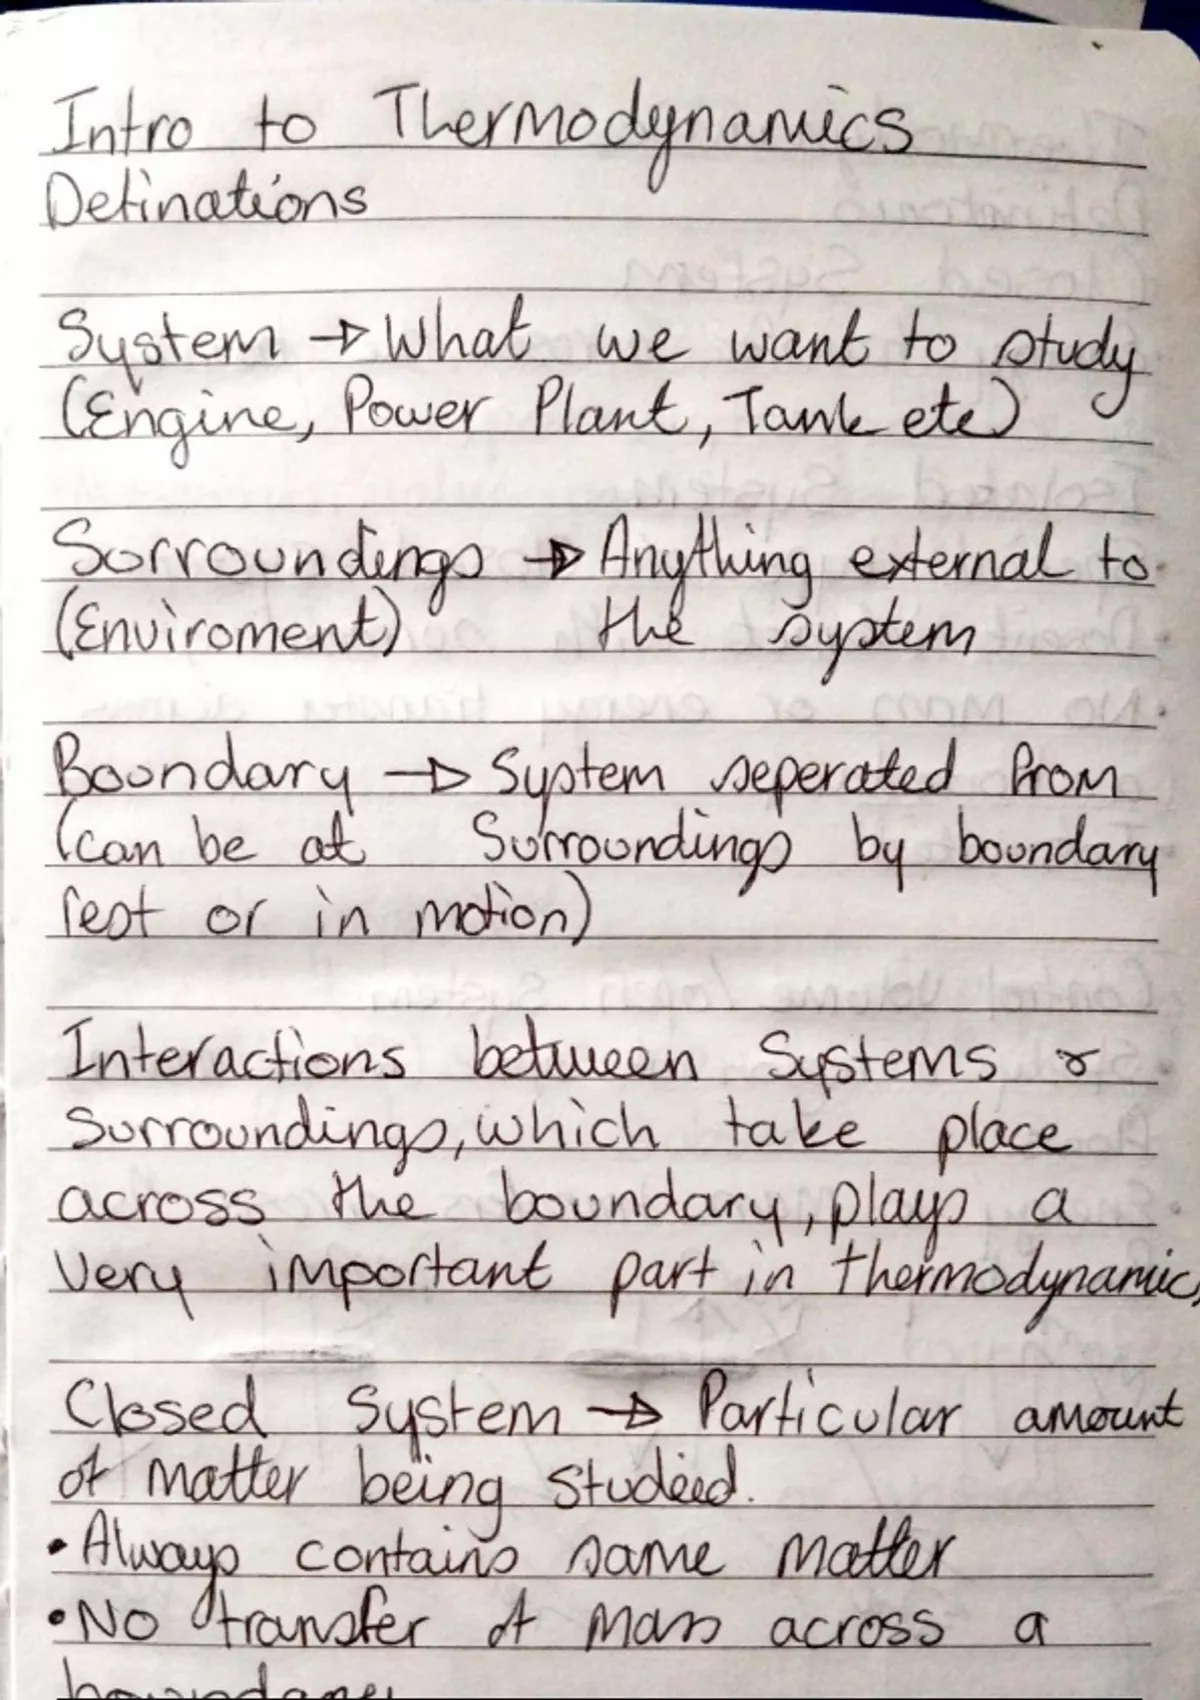 Intro to Thermodynamics
Definations
System → What we want to study
(Engine, Power Plant, Tank etc)
Sorroundings → Anything external to
(Enviroment) the system
Boundary → System seperated from
(can be at Surroundings by boundary
rest or in motion)
Interactions between Systems &
Surroundings, which take place
across the boundary, plays a
very important part in thermodynamics
Closed System → Particular amount
of matter being studied.
• Always contains same matter
• No transfer of mass across a
boundary